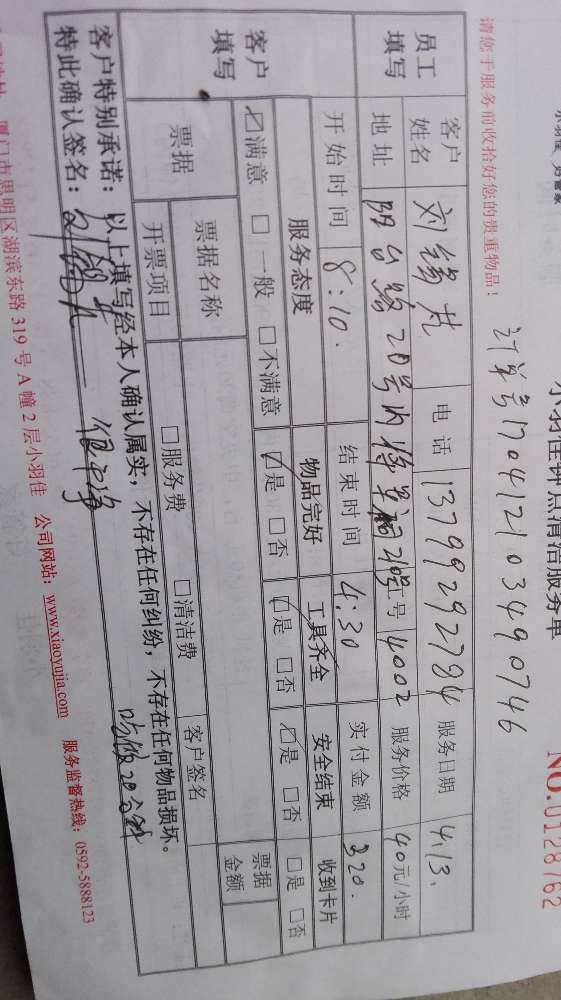 小羽佳 好管家
小羽佳钟点清洁服务单
NO.0128762
订单号17041210349 0746
请您于服务前收拾好您的贵重物品！
员工填写 客户姓名 电话 13799292784 服务日期 4.13.
地址 阳台路20号内 工号 4002 服务价格 40元/小时
开始时间 8:10. 结束时间 4:30 实付金额 320.
客户填写 服务态度 物品完好 工具齐全 安全结束 收到卡片
☑满意 □一般 □不满意 ☑是 □否 ☑是 □否 ☑是 □否 □是 □否
票据 票据名称 客户签名 票据金额
开票项目 □服务费 □清洁费
客户特别承诺：以上填写经本人确认属实，不存在任何纠纷，不存在任何物品损坏。
特此确认签名： 很干净 吃饭20分钟
厦门市思明区湖滨东路319号A幢2层小羽佳 公司网站：www.xiaoyujia.com 服务监督热线：0592-5888123